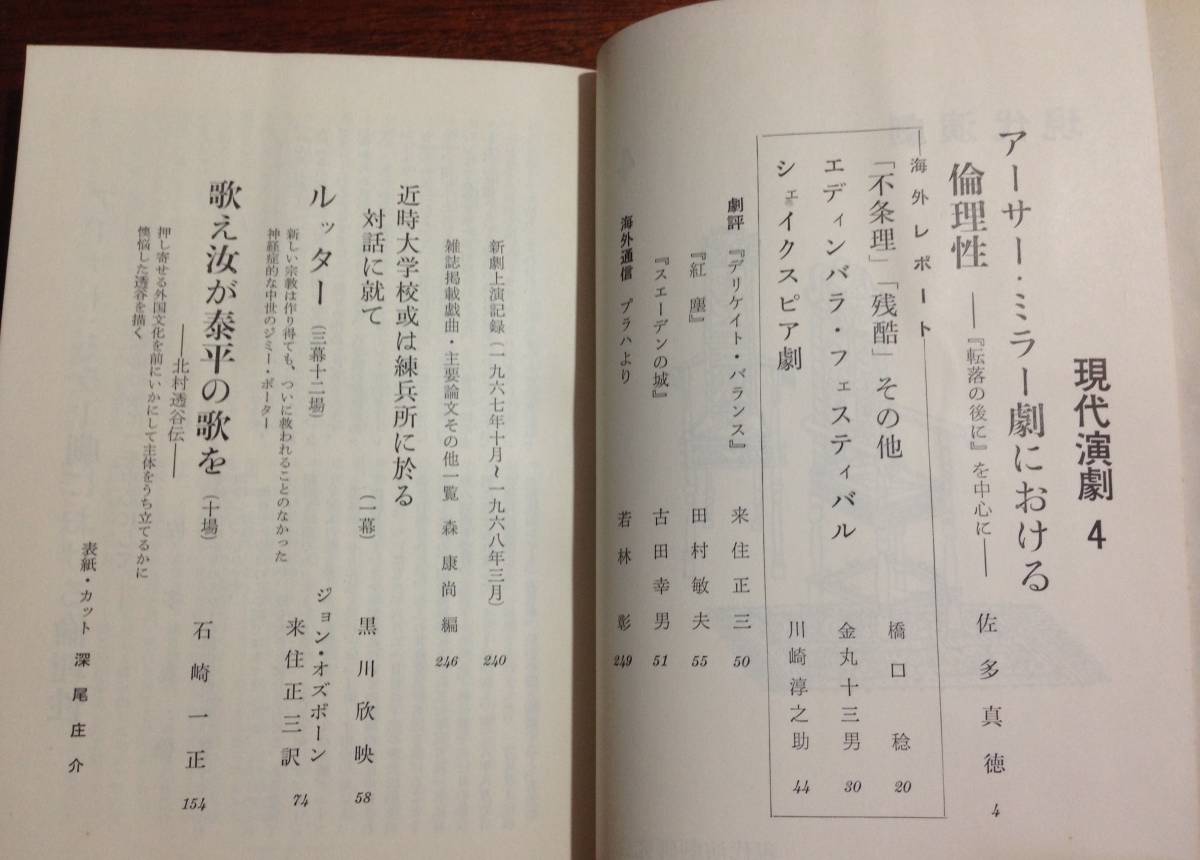 現代演劇 4
アーサー・ミラー劇における
倫理性 ――『転落の後に』を中心に―― 佐多真徳 4
海外レポート
「不条理」「残酷」その他 橋口稔 20
エディンバラ・フェスティバル 金丸十三男 30
シェイクスピア劇 川崎淳之助 44
劇評『デリケイト・バランス』 来住正三 50
『紅塵』 田村敏夫 55
『スエーデンの城』 古田幸男 51
海外通信 プラハより 若林彰 249
新劇上演記録(一九六七年十月〜一九六八年三月) 240
雑誌掲載戯曲・主要論文その他一覧 森康尚編 246
近時大学校或は練兵所に於る
対話に就て (一幕) 黒川欣映 58
ルッター (三幕十二場) ジョン・オズボーン
来住正三訳 74
新しい宗教は作り得ても、ついに救われることのなかった
神経症的な中世のジミー・ポーター
歌え汝が泰平の歌を (十場) 石崎一正 154
――北村透谷伝――
押し寄せる外国文化を前にいかにして主体をうち立てるかに
懊悩した透谷を描く
表紙・カット 深尾庄介